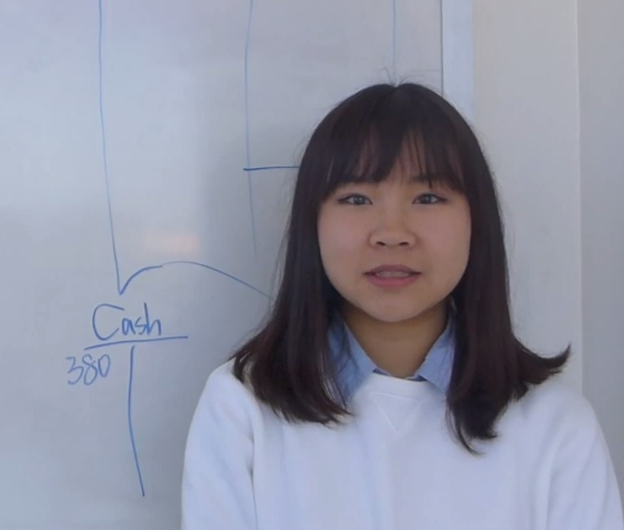 Cash
380